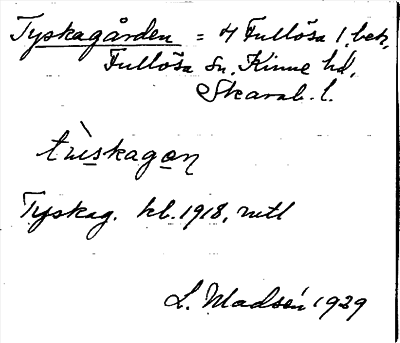 Tyskagården = 4 Fullösa 1, bet,
Fullösa sn. Kinne hd,
Skarab. l.
tỳskagɑn
Tyskag. kb. 1918, mtl
L. Madsén 1929